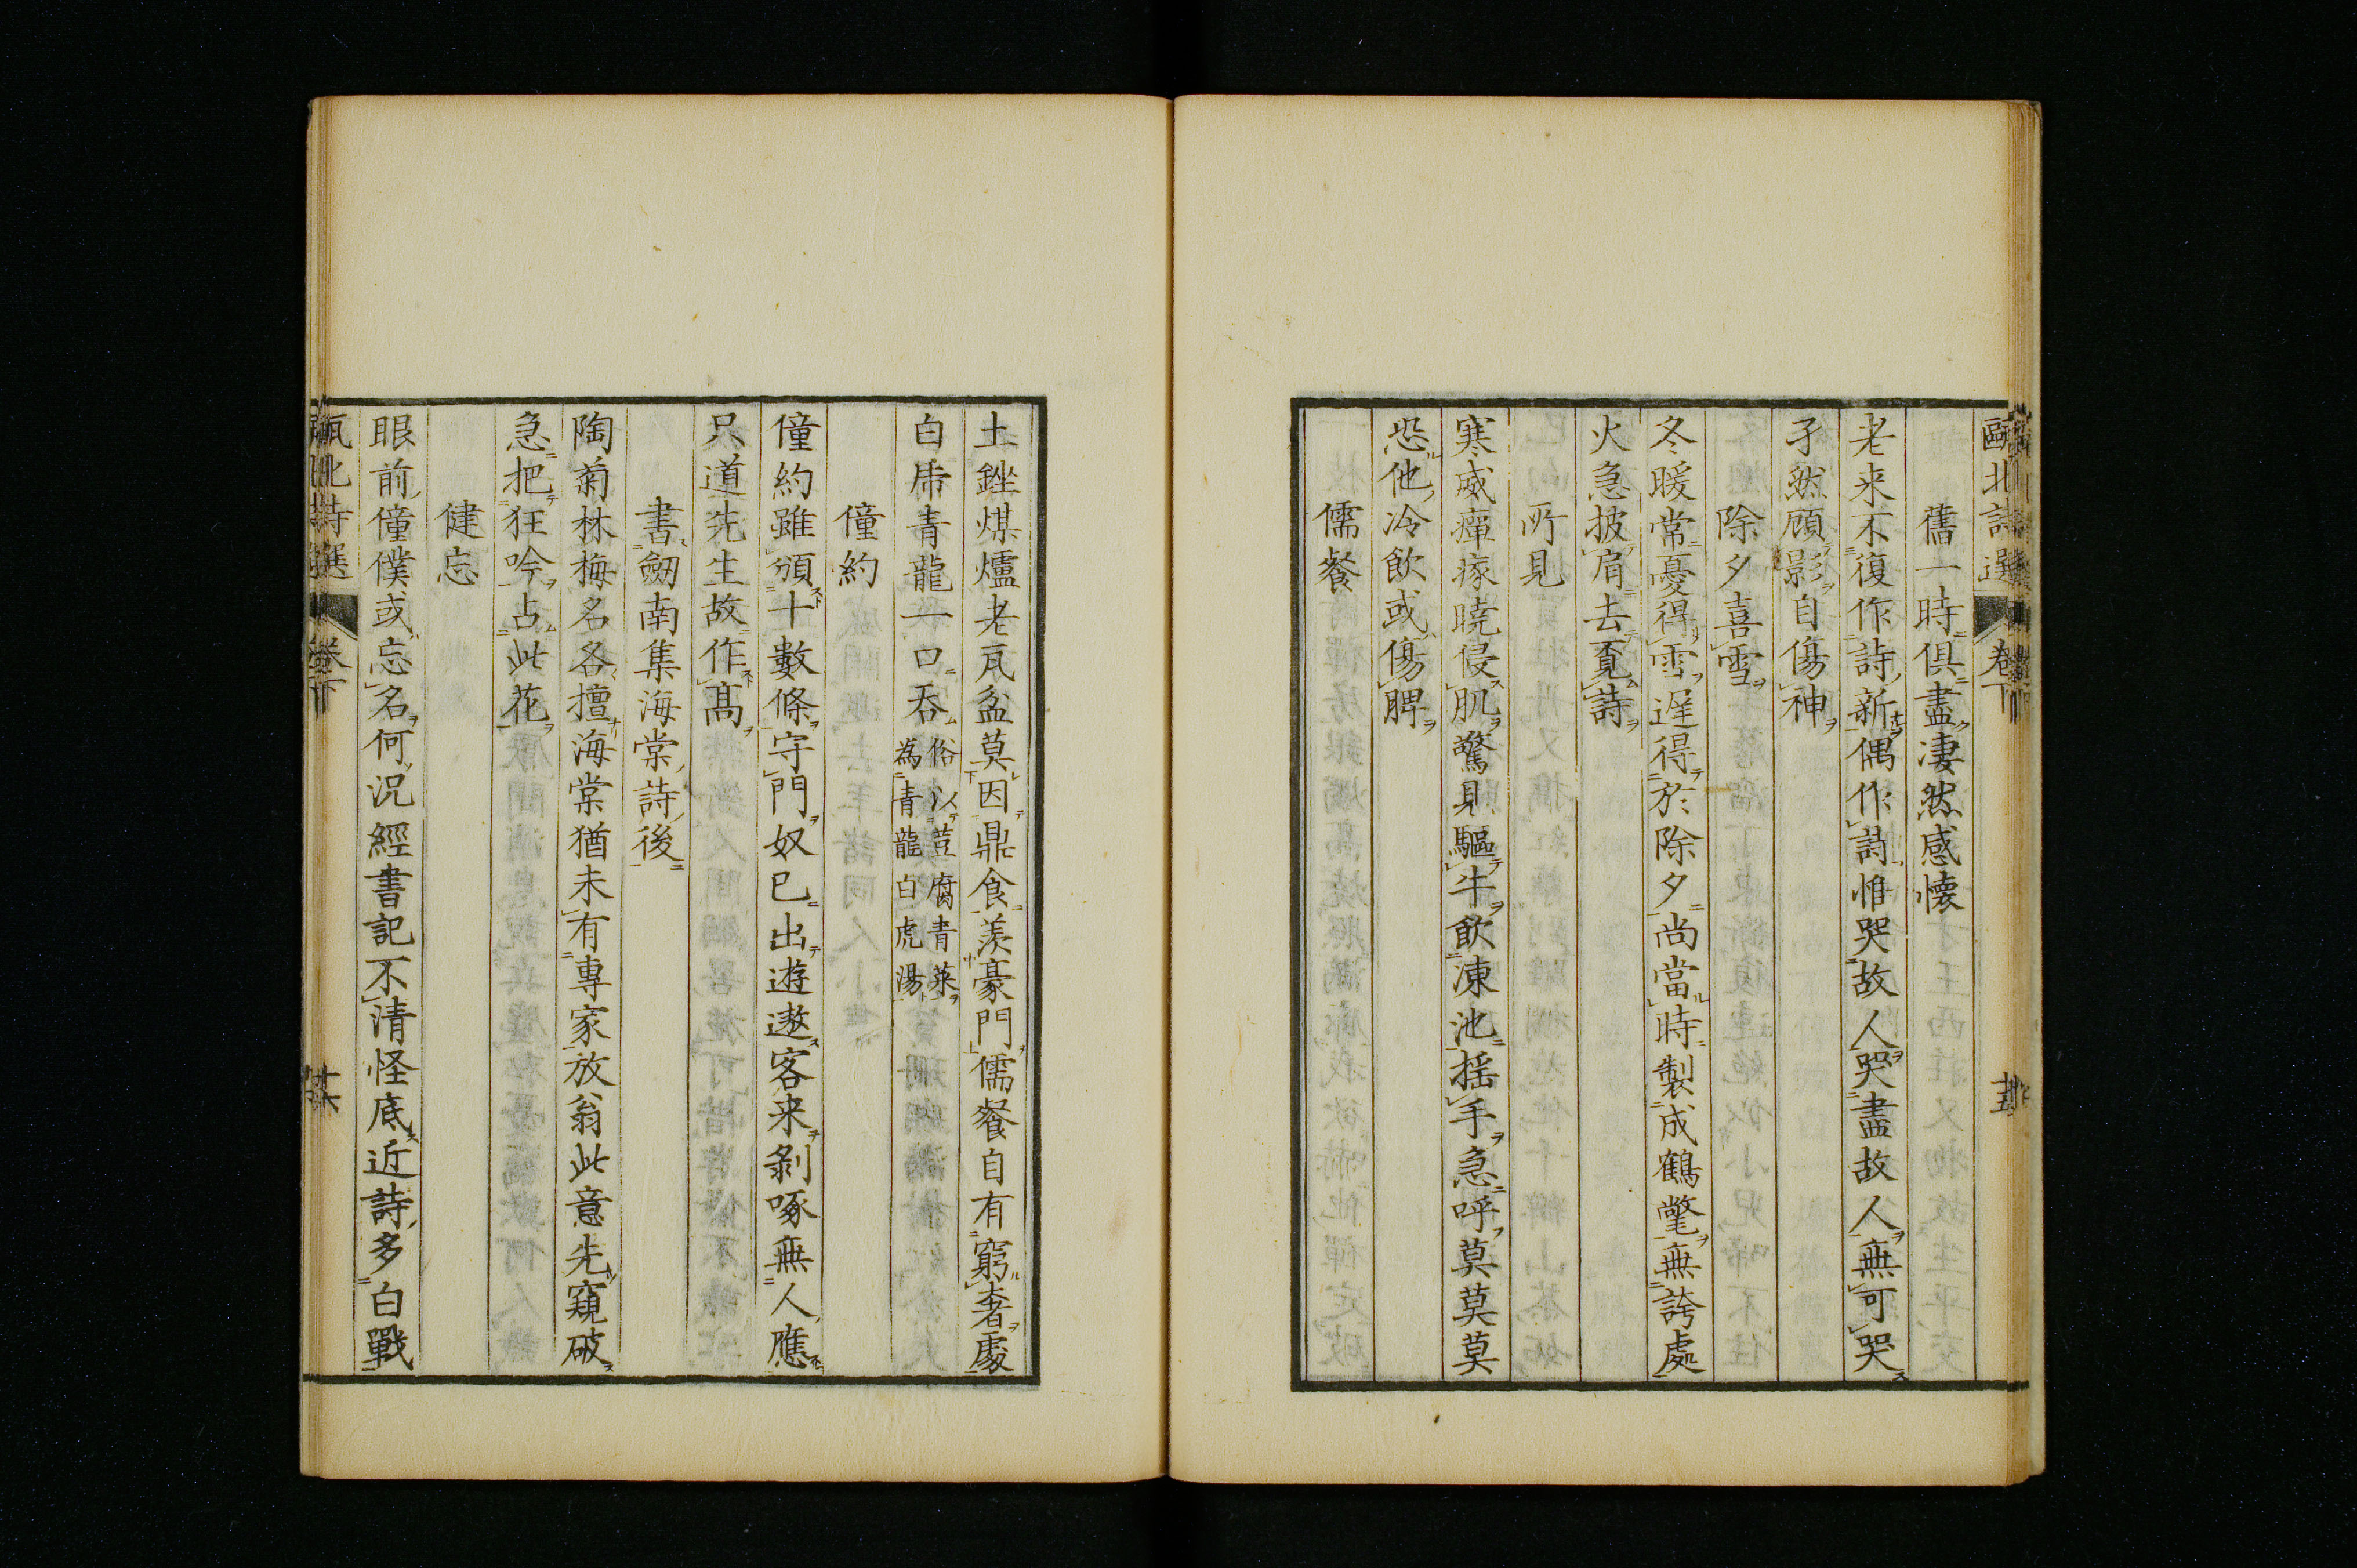 甌北詩選 卷下 十五
舊一時俱盡凄然感懷
老来不復作詩新偶作詩惟哭故人哭盡故人無可哭
孑然顧影自傷神
除夕喜雪
冬暖常憂得雪遅得於除夕尚當時製成鶴氅無誇處
火急披肩去覔詩
所見
寒威瘴瘃曉侵肌驚見驅牛飲凍池揺手急呼莫莫莫
恐他冷飲或傷脾
儒餐
土銼煤爐老瓦盆莫因鼎食羡豪門儒餐自有窮奢處
白虎青龍一口吞 俗以荳腐青菜
為青龍白虎湯
僮約
僮約雖頒十數條守門奴已出遊遨客来剝啄無人應
只道先生故作髙
書劒南集海棠詩後
陶菊林梅名各擅海棠猶未有專家放翁此意先窺破
急把狂吟占此花
健忘
眼前僮僕或忘名何況經書記不清怪底近詩多白戰
甌北詩選 卷下 十六